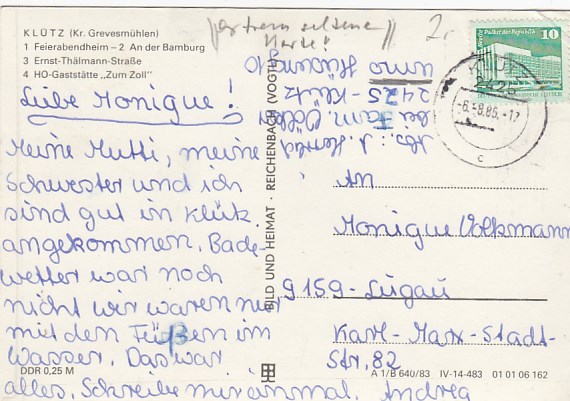 KLÜTZ (Kr. Grevesmühlen)
1 Feierabendheim – 2 An der Bamburg
3 Ernst-Thälmann-Straße
4 HO-Gaststätte „Zum Zoll"
Liebe Monique!
Meine Mutti, meine
Schwester und ich
sind gut in Klütz
angekommen. Bade-
wetter war noch
nicht wir waren nur
mit den Füßen im
Wasser. Das war
alles. Schreibe mir einmal. Andrea
DDR 0,25 M
BILD UND HEIMAT · REICHENBACH (VOGTL)
extrem seltene
Karte!
2,-
Abs.: A.
bei Fam.
2425 - Klütz
10
2425
-6.-8.86.-17
c
An
Monique Volkmann
9159 - Lugau
Karl-Marx-Stadt-
Str. 82
A 1/B 640/83 IV-14-483 01 01 06 162